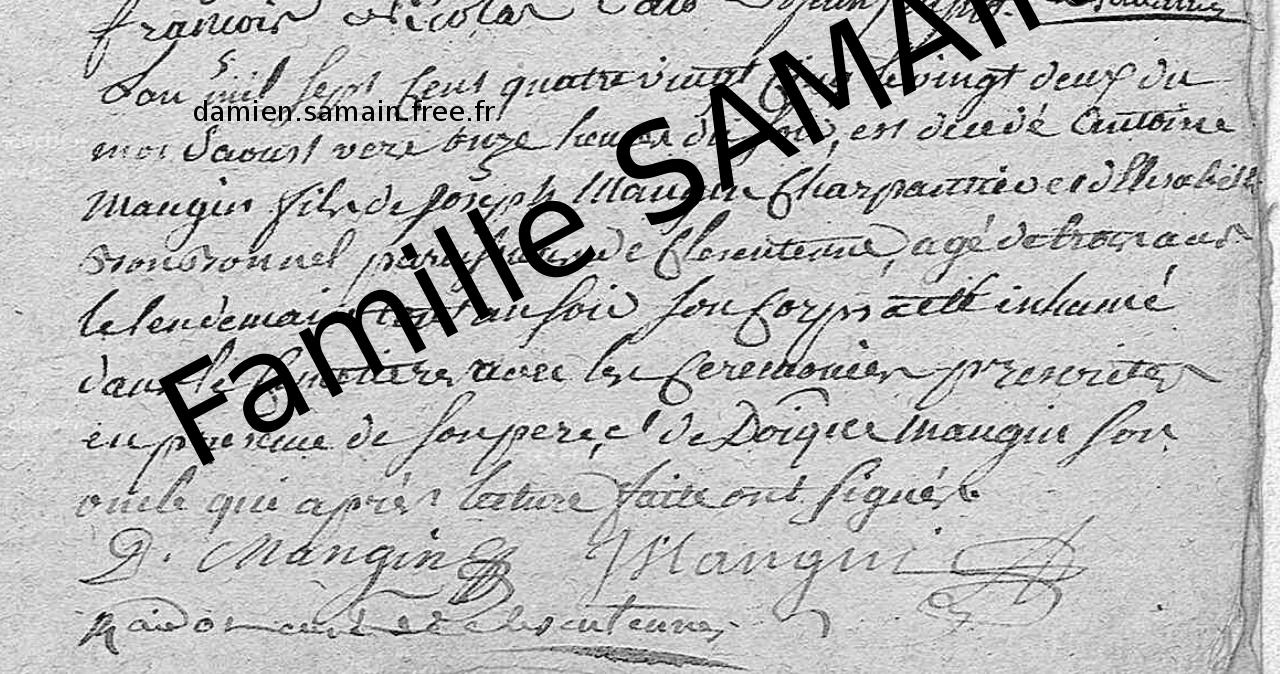 françois Nicolas
L'an mil sept cent quatre vingt cinq le vingt deux du
mois d'aoust vers onze heures du soir, est decedé Antoine
Mangin fils de Joseph Mangin Charpantier et d'Elisabeth
paroissiens de Clerentenne, agé de trois ans
le lendemain au soir son Corps a été inhumé
dans le Cimetiere avec les Ceremonies prescrites
en presence de son pere, et de Doique Mangin son
oncle qui aprés lecture faitte ont signés.
D. Mangin Mangin
curé de
Famille SAMAIN
damien.samain.free.fr